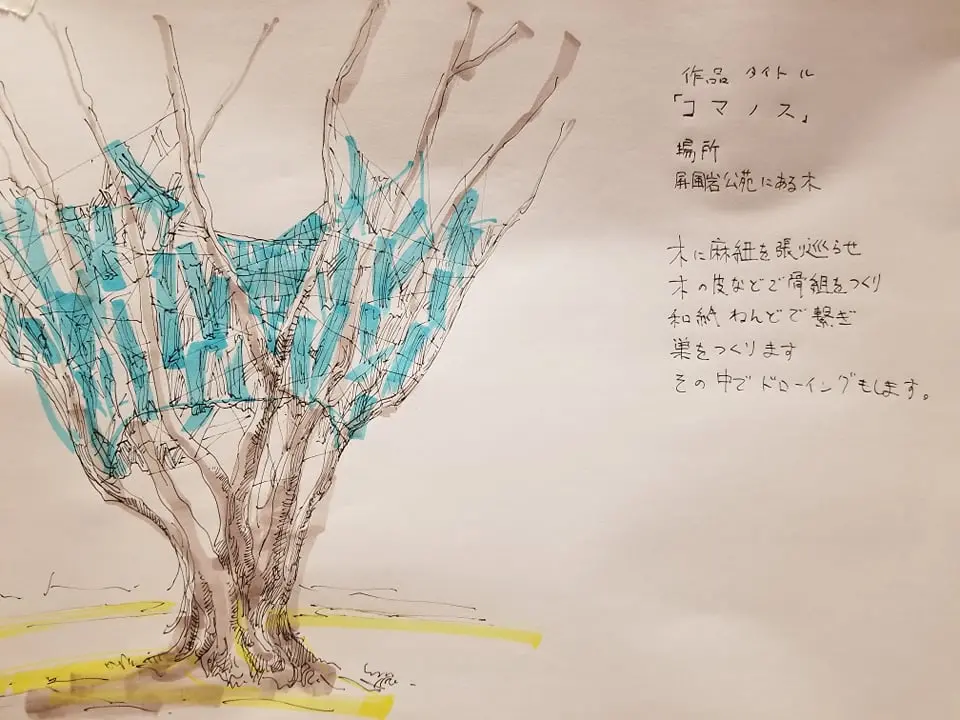 作品 タイトル
「コマノス」
場所
屏風岩公苑にある木
木に麻紐を張り巡らせ
木の皮などで骨組をつくり
和紙ねんどで繋ぎ
巣をつくります
その中でドローイングもします。